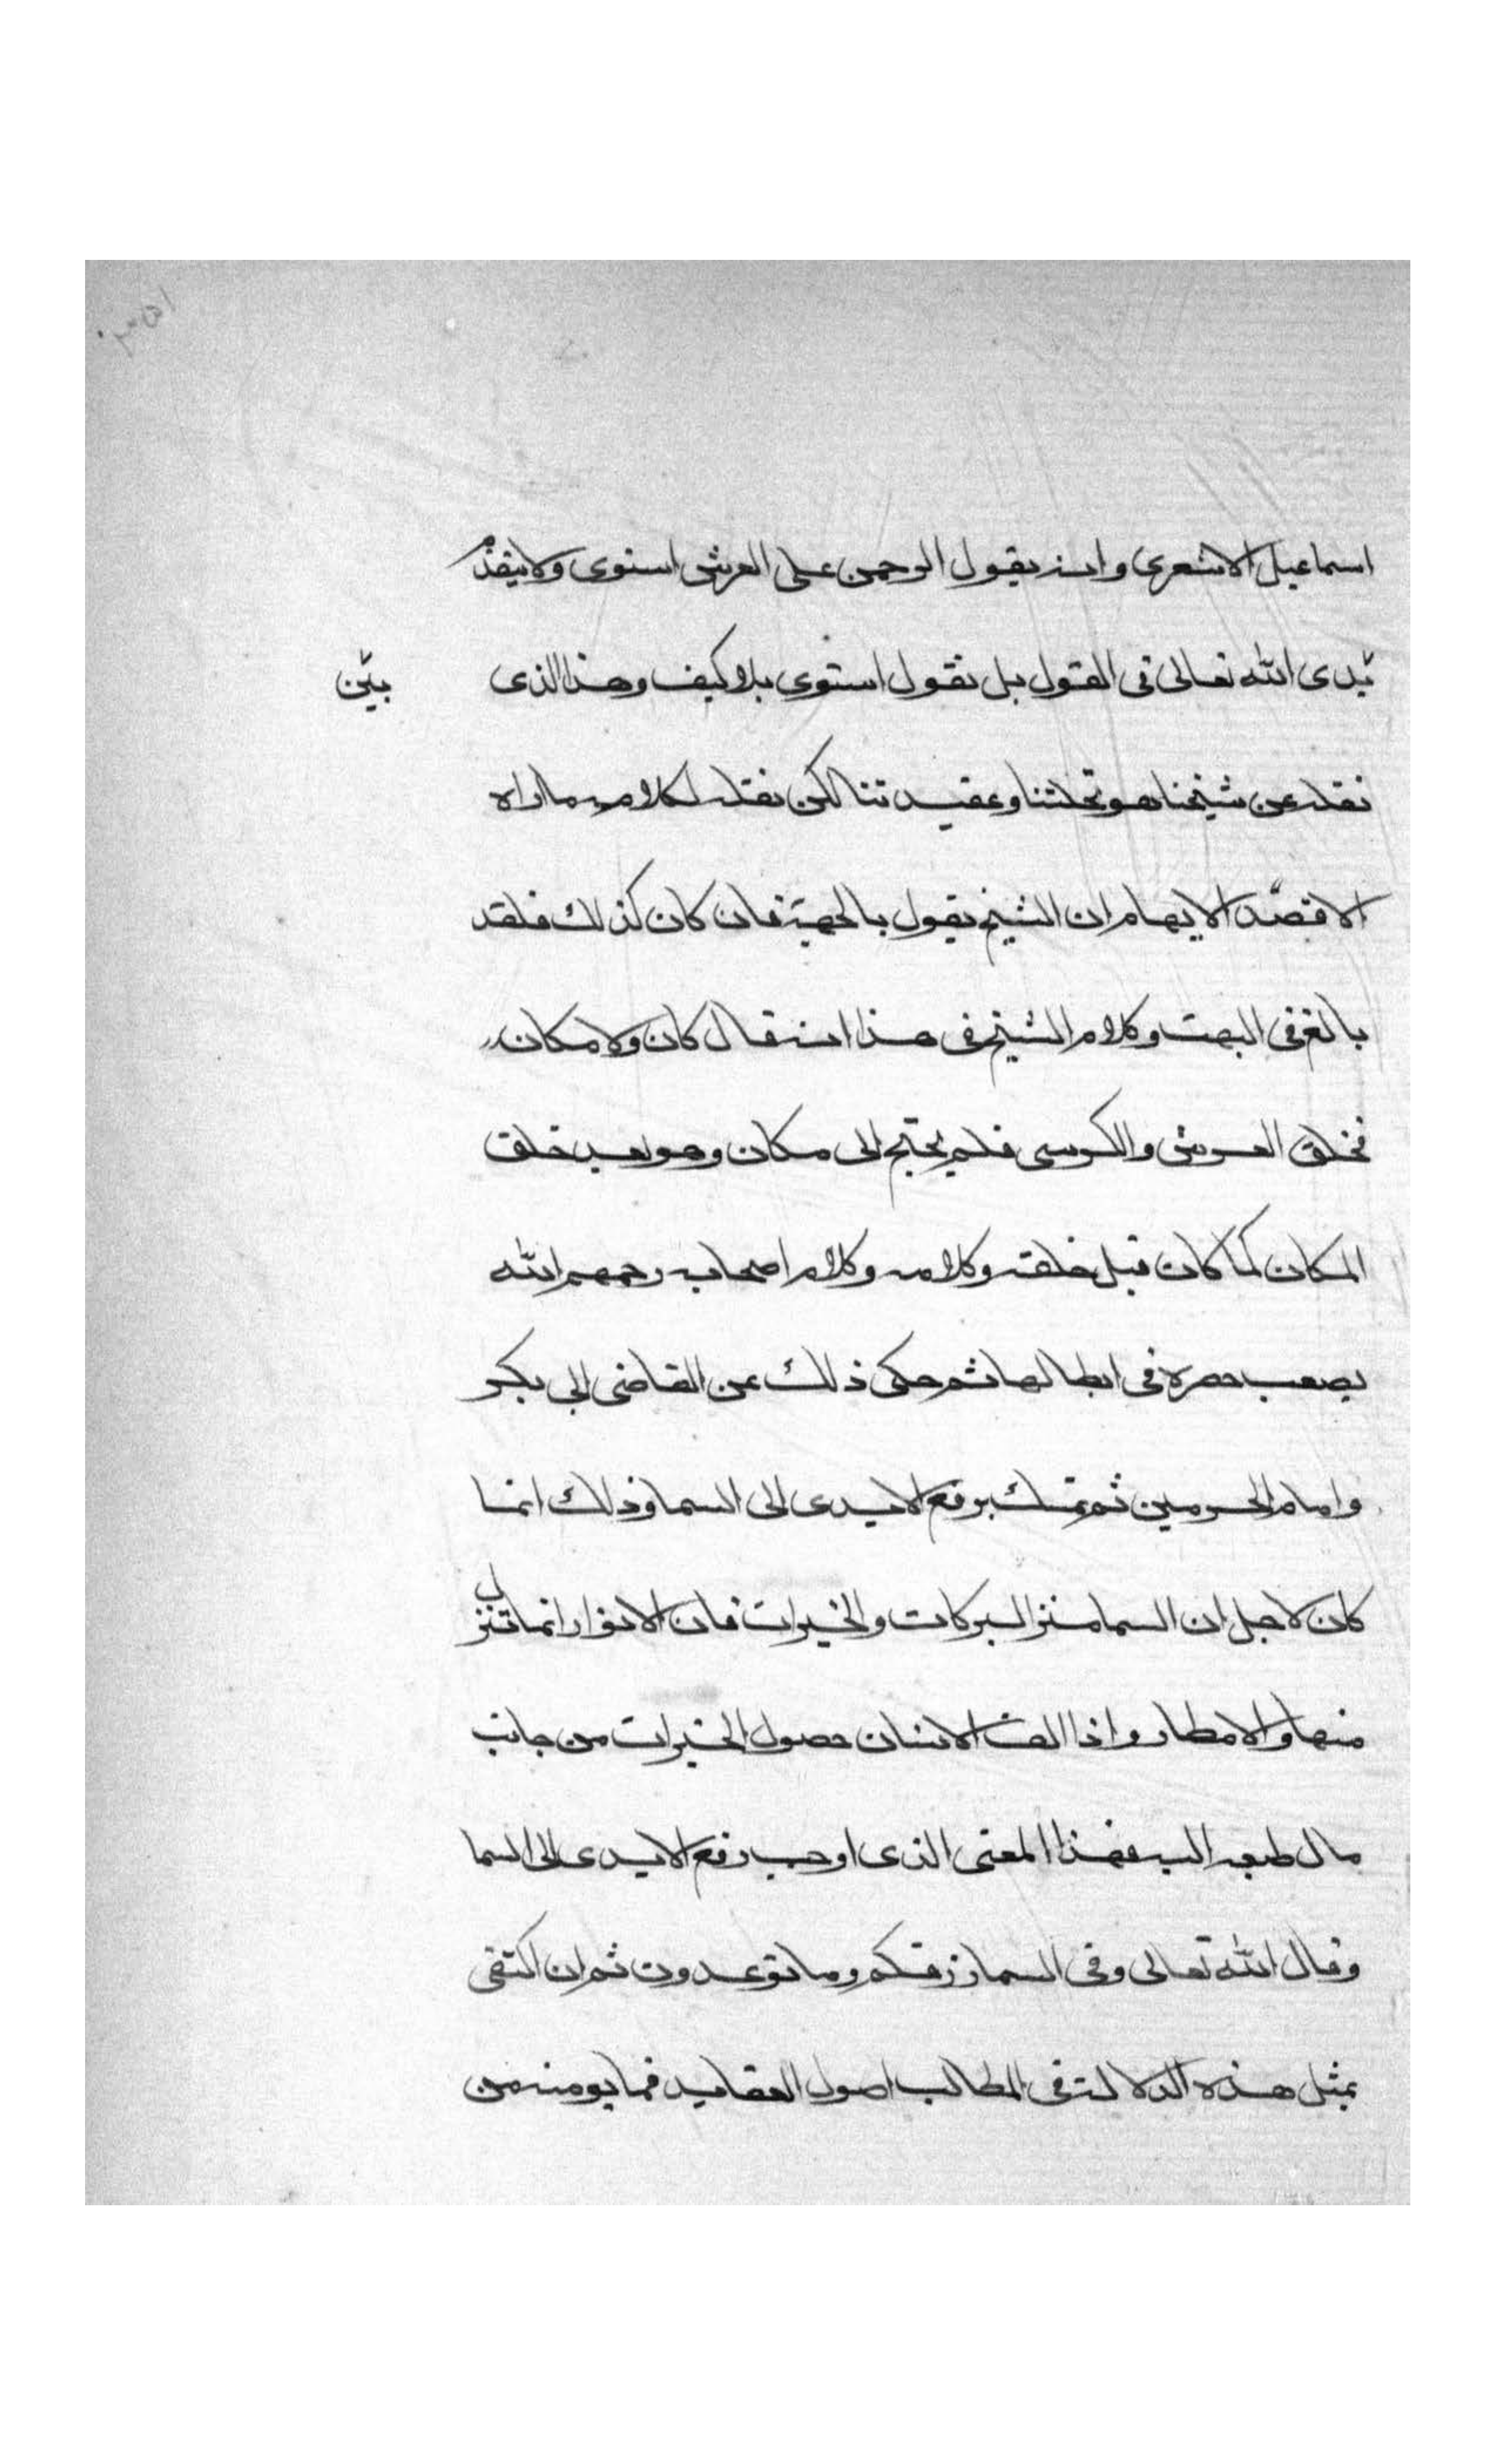 اسماعيل الاشعرى وانه يقول الرحمن على العرش استوى ولا يتقدم
بين يدى الله تعالى فى القول بل نقول استوى بلا كيف وهذا الذى
نقله عن شيخنا هو نحلتنا وعقيدتنا لكن نقله لكلامه ما اراه
الا قصد الايهام ان الشيخ يقول بالجهة فان كان كذلك فلقد
بالغ فى البهت وكلام الشيخ فى هذا انه قال كان ولا مكان
فخلق العرش والكرسى فلم يحتج الى مكان وهو بعد خلق
المكان كما كان قبل خلقه وكلامه وكلام اصحابه رحمهم الله
يصعب حصره فى ابطالها ثم حكى ذلك عن القاضى ابى بكر
وامام الحرمين ثم تمسك برفع الايدى الى السما وذلك انما
كان لاجل ان السما منزل البركات والخيرات فان الانوار انما تتنزل
منها والامطار واذا الف الانسان حصول الخيرات من جانب
مال طبعه اليه فهذا المعنى الذى اوجب رفع الايدى الى السما
وقال الله تعالى وفى السما رزقكم وما توعدون ثم ان اكتفى
بمثل هذه الدلالة فى المطالب اصول العقايد فما يومنه من